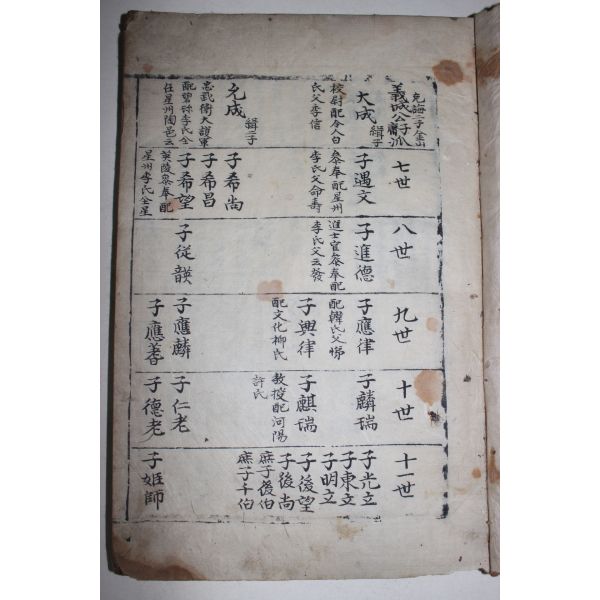 義成公子
大成
緝子
校尉配令人白
氏父李信
允成
緝子
忠武衛大護軍
七世
子遇文
叅奉配星州
李氏父命壽
子希尚
子希昌
子希望
英陵叅奉配
星州李氏全星
八世
子進德
進士官叅奉配
李氏父云發
子從諆
九世
子應律
配韓氏父悌
子興律
配文化柳氏
子應麟
子應善
十世
子麟瑞
子麒瑞
教授配河陽
許氏
子仁老
子德老
十一世
子光立
子東立
子明立
子後望
子後尚
庶子後伯
庶子千伯
子姬師